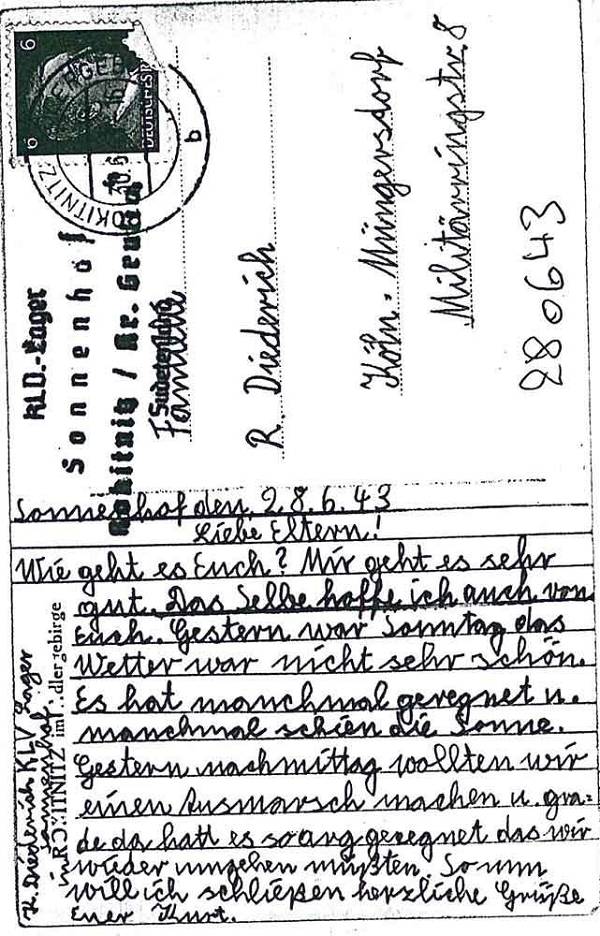 6
6
DEUTSCHES
b
KLV.-Lager
Sonnenhof
Rokitnitz / Kr. Grulich
Sudetengau
Familie
R. Diederich
Köln-Müngersdorf
Militärringstr 8
280643
Sonnenhof den 28.6.43
Liebe Eltern!
Wie geht es Euch? Mir geht es sehr
gut. Das Selbe hoffe ich auch von
Euch. Gestern war Sonntag das
Wetter war nicht sehr schön.
Es hat manchmal geregnet u.
manchmal schien die Sonne.
Gestern nachmittag wollten wir
einen Ausmarsch machen u. gra=
de da hatt es so arg geregnet das wir
wieder umgehen mußten. So nun
will ich schließen herzliche Grüße
Euer Kurt.
K. Diederich KLV Lager
Sonnenhof
in ROKITNITZ im Adlergebirge